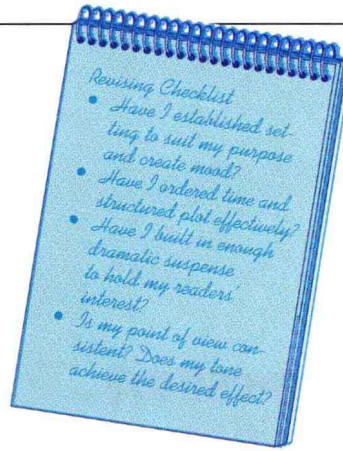 Revising Checklist
• Have I established set-
ting to suit my purpose
and create mood?
• Have I ordered time and
structured plot effectively?
• Have I built in enough
dramatic suspense
to hold my readers'
interest?
• Is my point of view con-
sistent? Does my tone
achieve the desired effect?